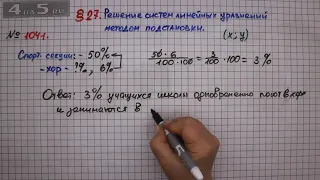 4 на 5.ru
§27. Решение систем линейных уравнений
методом подстановки.
(x; y)
№ 1041.
Спорт. секции - 50%
- хор - ?%, 6%
50 · 6 / 100 · 100 = 3 / 100 · 100 = 3 %
Ответ: 3% учащихся школы одновременно поют в хоре
и занимаются в